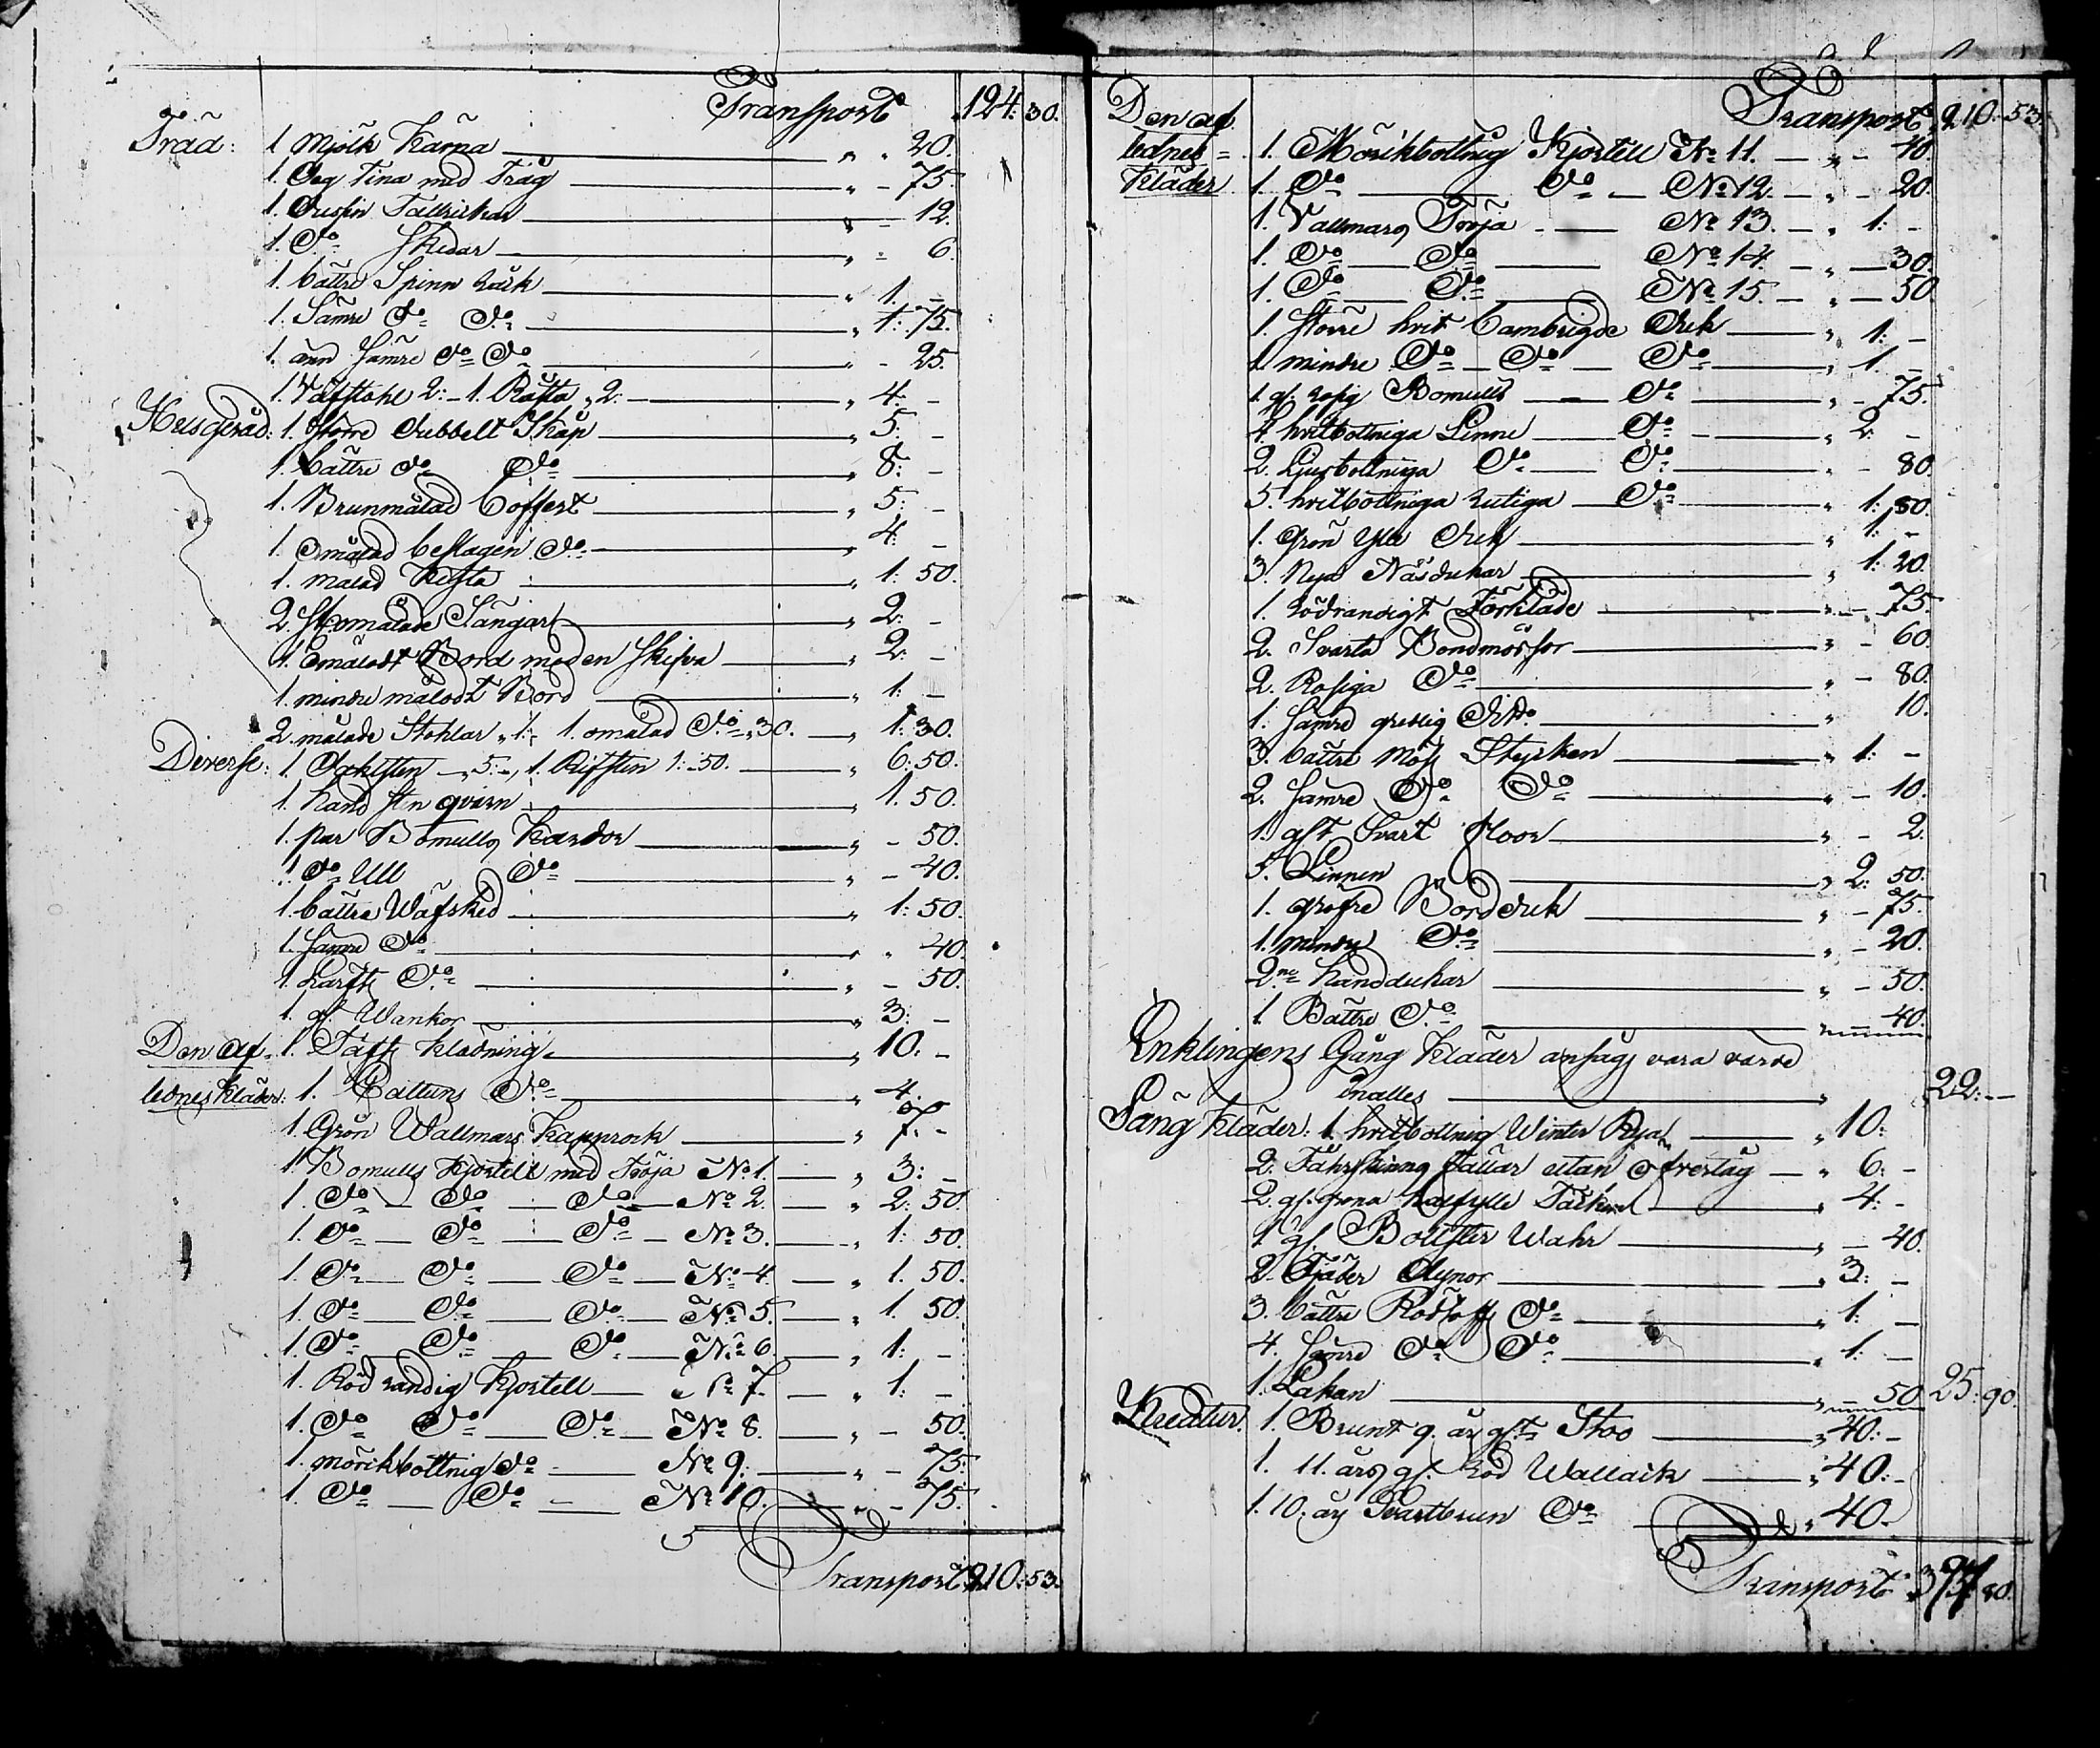 Transport 124: 30.
Träd: 1 Mjölk Kärna „ „ 20.
1. Deg Tina med Tråg „ - 75.
1. Dussin Tallrickar „ - 12.
1. Do Skedar „ - 6.
1. bättre Spinn Råck „ 1. -
1. Sämre Do Do „ 1: 75.
1. änn Sämre Do Do „ - 25.
1. Väfstohl 2: - 1. Rästa „ 2: „ 4. -
Husgeråd: 1. Större dubbelt Skåp „ 5: -
1. bättre do Do „ 8: -
1. Brunmålad Coffert „ 5: -
1. Omålad beslagen Do „ 4: -
1. målad Kista „ 1: 50.
2. St. omålade Sängar „ 2: -
1. Omålodt Bord med en Skifva „ 2: -
1. mindre målodt Bord „ 1: -
2. målade Stohlar „ 1: - 1. omålad Do „ 30. „ 1: 30.
Diverse: 1 Oxhlsten „ 5: -, 1. Rifsten 1: 50. „ 6: 50.
1. hand Sten qvarn „ 1. 50.
1. par Bomulls Kardor „ - 50.
1. do Ull Do „ - 40.
1. bättre Wäfsked „ 1: 50.
1. Sämre Do „ „ 40.
1. Lärfts Do „ - 50.
1. gl. Wankor „ 3: -
Den af- 1. Tafts Klädning „ 10. -
lednes Kläder: 1. Cattuns Do „ 4.
1. Grön Wallmars Kapprock „ 7. -
1. Bomulls Kjortell med Tröja No 1. „ 3: -
1. Do Do Do No 2. „ 2: 50.
1. Do Do Do No 3. „ 1: 50.
1. Do Do Do No 4. „ 1. 50.
1. Do Do Do No 5. „ 1. 50.
1. Do Do Do No 6. „ 1: -
1. Röd randig Kjortell No 7. „ 1: -
1. Do Do Do No 8. „ - 50.
1. mörikbottnig Do No 9. „ - 75.
1. Do Do No 10. „ - 75.
Transport 210: 53.
Transport 210: 53.
Den af
lednes = 1. Mörikbottnig Kjortell No 11. „ - 40.
Kläder 1. Do Do No 12. „ - 20
1. Vallmars Tröja No 13. „ 1: -
1. Do Do No 14. „ 30.
1. Do Do No 15. „ 50
1. Större hvit Cambrigde Duk „ 1: -
1 mindre Do Do Do „ 1. -
1. gl. rosig Bomulls Do „ - 75.
4. hvitbottniga Linne Do „ 2: -
2. Ljusbottniga Do Do „ - 80
5. hvitbottniga rutiga Do „ 1: 50.
1. Grön Ylle Duk „ 1: -
3. Nya Näsdukar „ 1: 20.
1. Rödrandigt Förkläde „ - 75.
2. Svarta Bondmössor „ - 60
2. Rosiga Do „ - 80.
1. Sämre greslig Ditto „ 10.
3. bättre Möss Stycken „ 1: -
2. Sämre Do Do „ - 10.
1. glt Svart Floor „ - 2.
5. Linnen „ 2: 50.
1. grofre Bordduk „ - 75.
1. mindre Do „ - 20.
2ne handdukar „ - 50.
1. Bättre Do „ 40.
Enklingens Gång Kläder ansågs vara värde
inalles „ 22: -
Säng Kläder: 1. hvitbottnig Winter Rya „ 10:
2. Fåhrskinns Fällar utan öfvertåg „ 6: -
2. gl. gröna halfylle Täcken „ 4: -
1 gl. Bollster Wahr „ - 40.
2. Fjäder Dynor „ 3: -
3. bättre Do „ 1: -
4. Sämre Do Do „ 1: -
1. Lakan „ 50 25: 90.
Kreatur. 1. Brunt 9. års glt Stoo „ 40: -
1. 11. års gl. Röd Wallack „ 40: -
1. 10. års Svartbrun Do „ 40. -
Transport